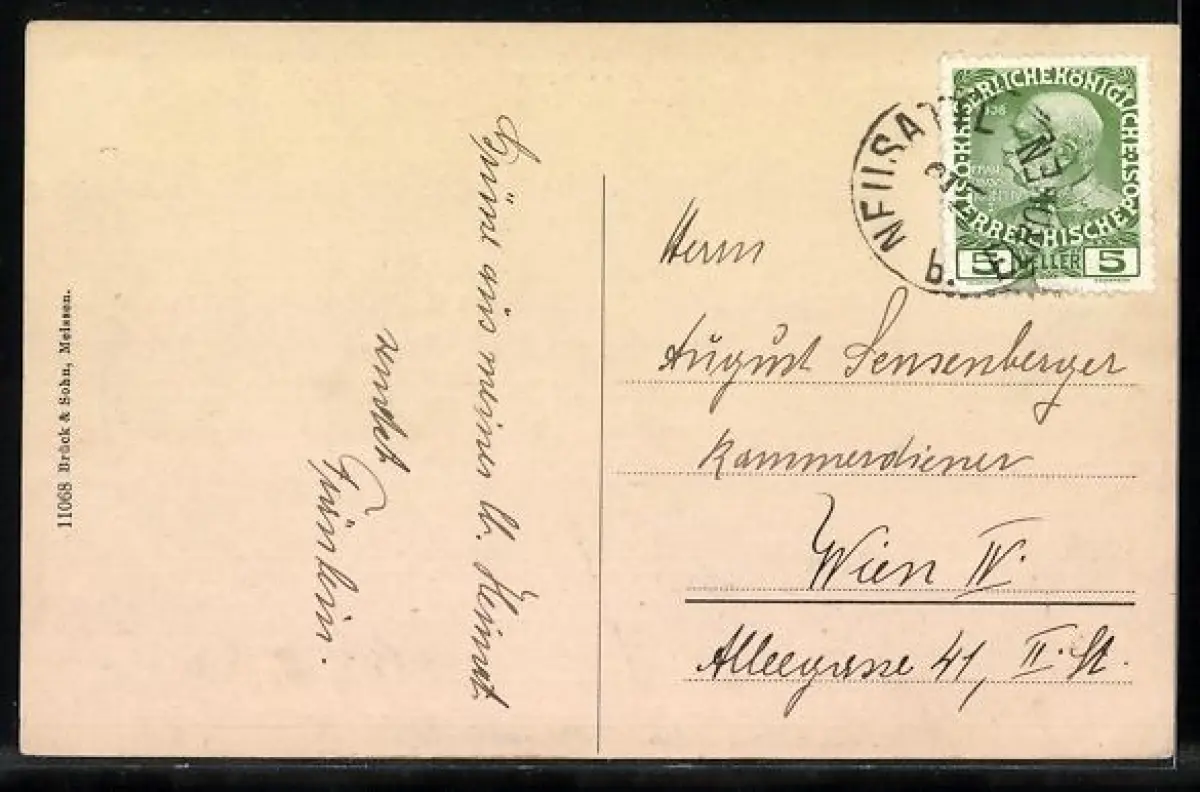 11068 Brück & Sohn, Meissen.
Grüße aus meiner lb. Heimat
sendet
KAISERLICHE KÖNIGLICHE ÖSTERREICHISCHE POST
1908
5 HELLER 5
NEUSATTL
b. ELBOGEN
Herrn
August Sensenberger
Kammerdiener
Wien IV.
Alleegasse 41, II. St.